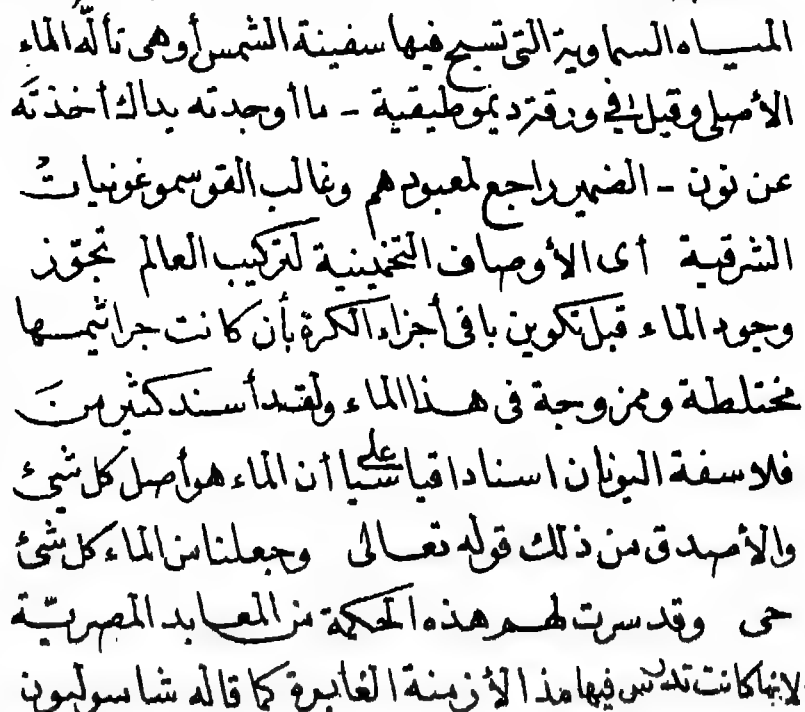 المياه السماوية التى تسبح فيها سفينة الشمس أو هى تألّه الماء
الأصلى وقيل فى ورقة ديموطيقية - ما أوجدته يداك أخذته
عن نون - الضمير راجع لمعبودهم وغالب القوسموغونيات
الشرقية أى الأوصاف التخمينية لتركيب العالم تجوّز
وجود الماء قبل تكوين باقى أجزاء الكرة بأن كانت جراثيمها
مختلطة وممزوجة فى هذا الماء ولقد أسند كثير من
فلاسفة اليونان اسنادا قياسيا على أن الماء هو أصل كل شئ
والأصدق من ذلك قوله تعالى وجعلنا من الماء كل شئ
حى وقد سرت لهم هذه الحكمة من المعابد المصريّة
لانها كانت تدرس فيها مذ الأزمنة الغابرة كما قاله شاسوليون